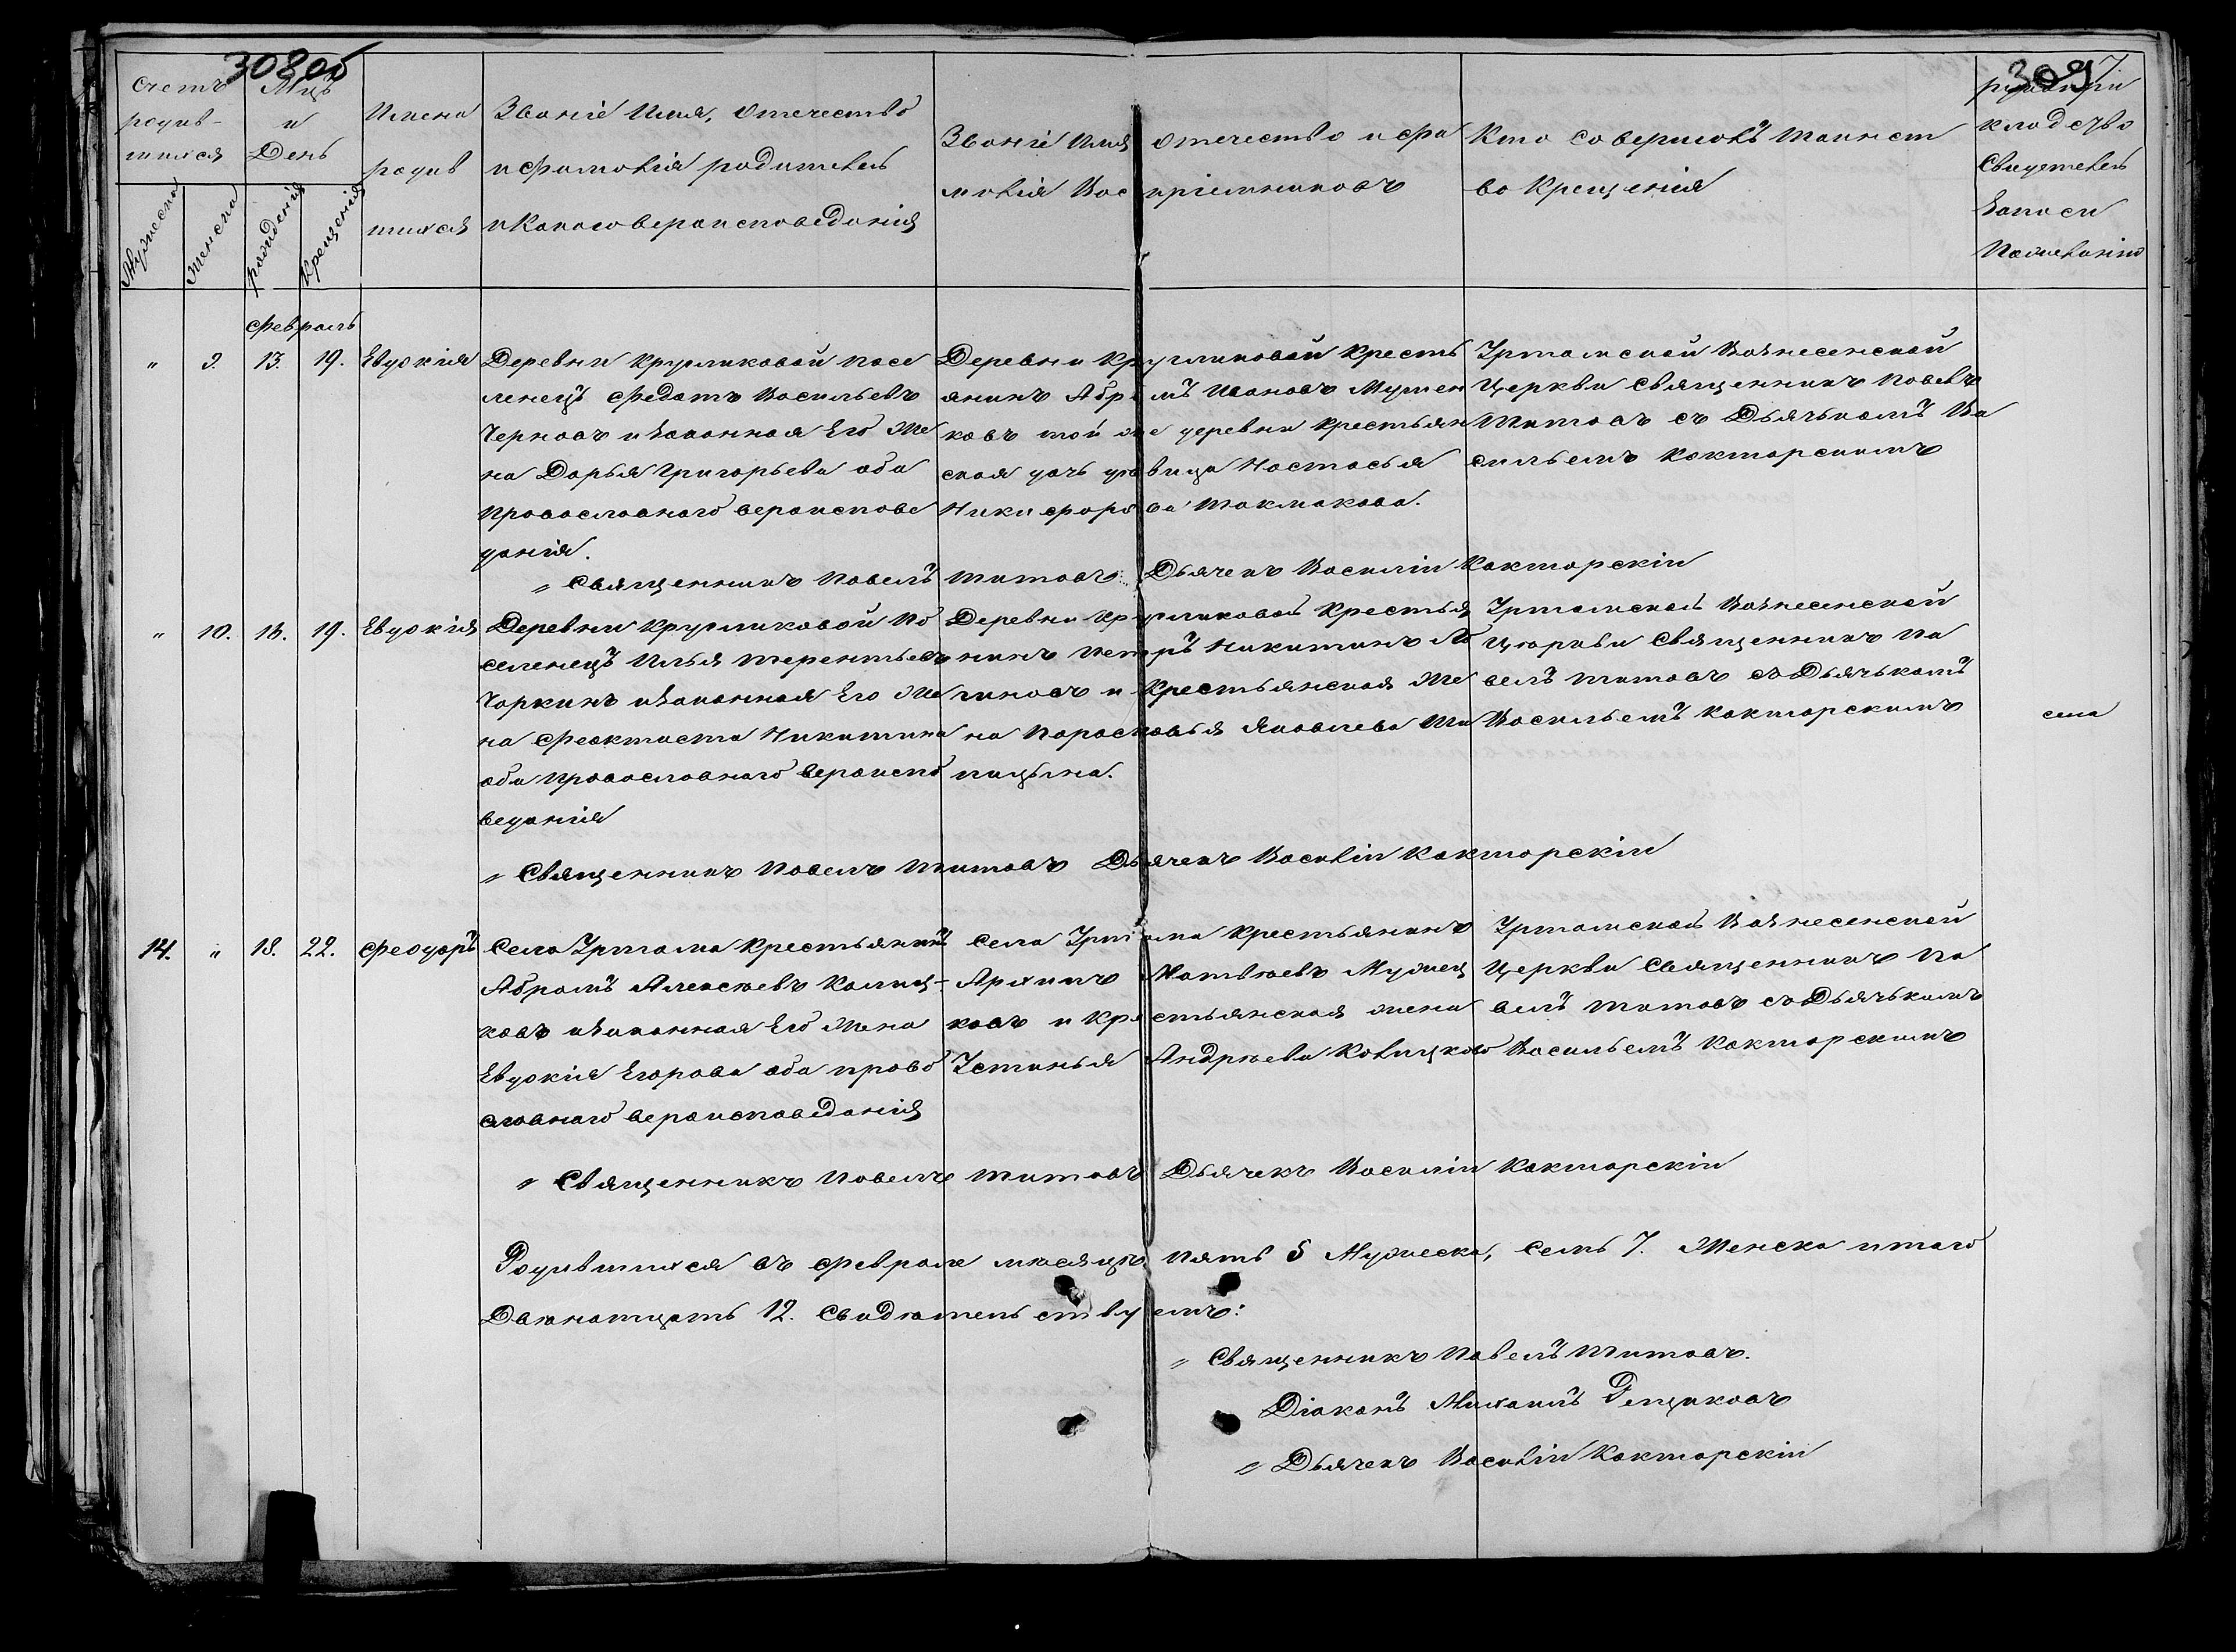 308об
309
Счетъ родив-шихся
Мцъ и День
Имена родившихся
Званіе Имя, Отечество и Фамилія родителей и Какого вероисповеданія
Званіе Имя отечество и фамилія Воспріемниковъ
Кто совершилъ таинство Крещенія
Свидетелей записи По желанію
Мужеска
Женска
рожденія
Крещенія
Февраль
" 9. 13. 19. Евдокія
Деревни Кругликовой посе
ленецъ Федотъ Васильевъ
Черновъ и законная Его Же
на Дарья Григорьева оба
Православнаго вероиспове
данія.
Деревни Кругликовой Кресть
янинъ Абрамъ Ивановъ
ковъ той же деревни Крестьян
ская дочь девица Настасья
Никифорова Токмакова.
Уртамской Вознесенской
Церкви Священникъ Павелъ
Титовъ съ Дьячькомъ Ва
сильемъ Кокторскимъ
" Священникъ Павелъ Титовъ. Дьячекъ Василій Кокторскій
" 10. 18. 19. Евдокія
Деревни Кругликовой По
селенецъ Илья Терентьевъ
Чаркинъ и законная Его Же
на Феоктиста Никитина
оба Православнаго вероиспо
веданія
Деревни Кругликовой Крестья
нинъ Петръ Никитинъ Ло
гиновъ и Крестьянская Же
на Парасковья Яковлева Ши
пицына.
Уртамской Вознесенской
Церкви Священникъ Па
велъ Титовъ съ Дьячькомъ
Васильемъ Кокторскимъ
" Священникъ Павелъ Титовъ Дьячекъ Василій Кокторскій
14. " 18. 22. Феодоръ
Села Уртама Крестьянинъ
Абрамъ Алексеевъ Калищ-
ковъ и законная Его Жена
Евдокія Егорова оба право
славнаго вероисповеданія
Села Уртама Крестьянинъ
Архипъ Матвеевъ Мужец
ковъ и Крестьянская жена
Устинья Андреева
Уртамской Вознесенской
Церкви Священникъ Па
велъ Титовъ съ Дьячькомъ
Васильемъ Кокторскимъ
" Священникъ Павелъ Титовъ Дьячекъ Василій Кокторскій
Родившихся въ феврале месяце пять 5 Мужеска, семь 7. Женска итого
Двенатцать 12. Свидетельствуемъ:
" Священникъ Павелъ Титовъ.
Діаконъ Михаилъ Репщиковъ
" Дьячекъ Василій Кокторскій